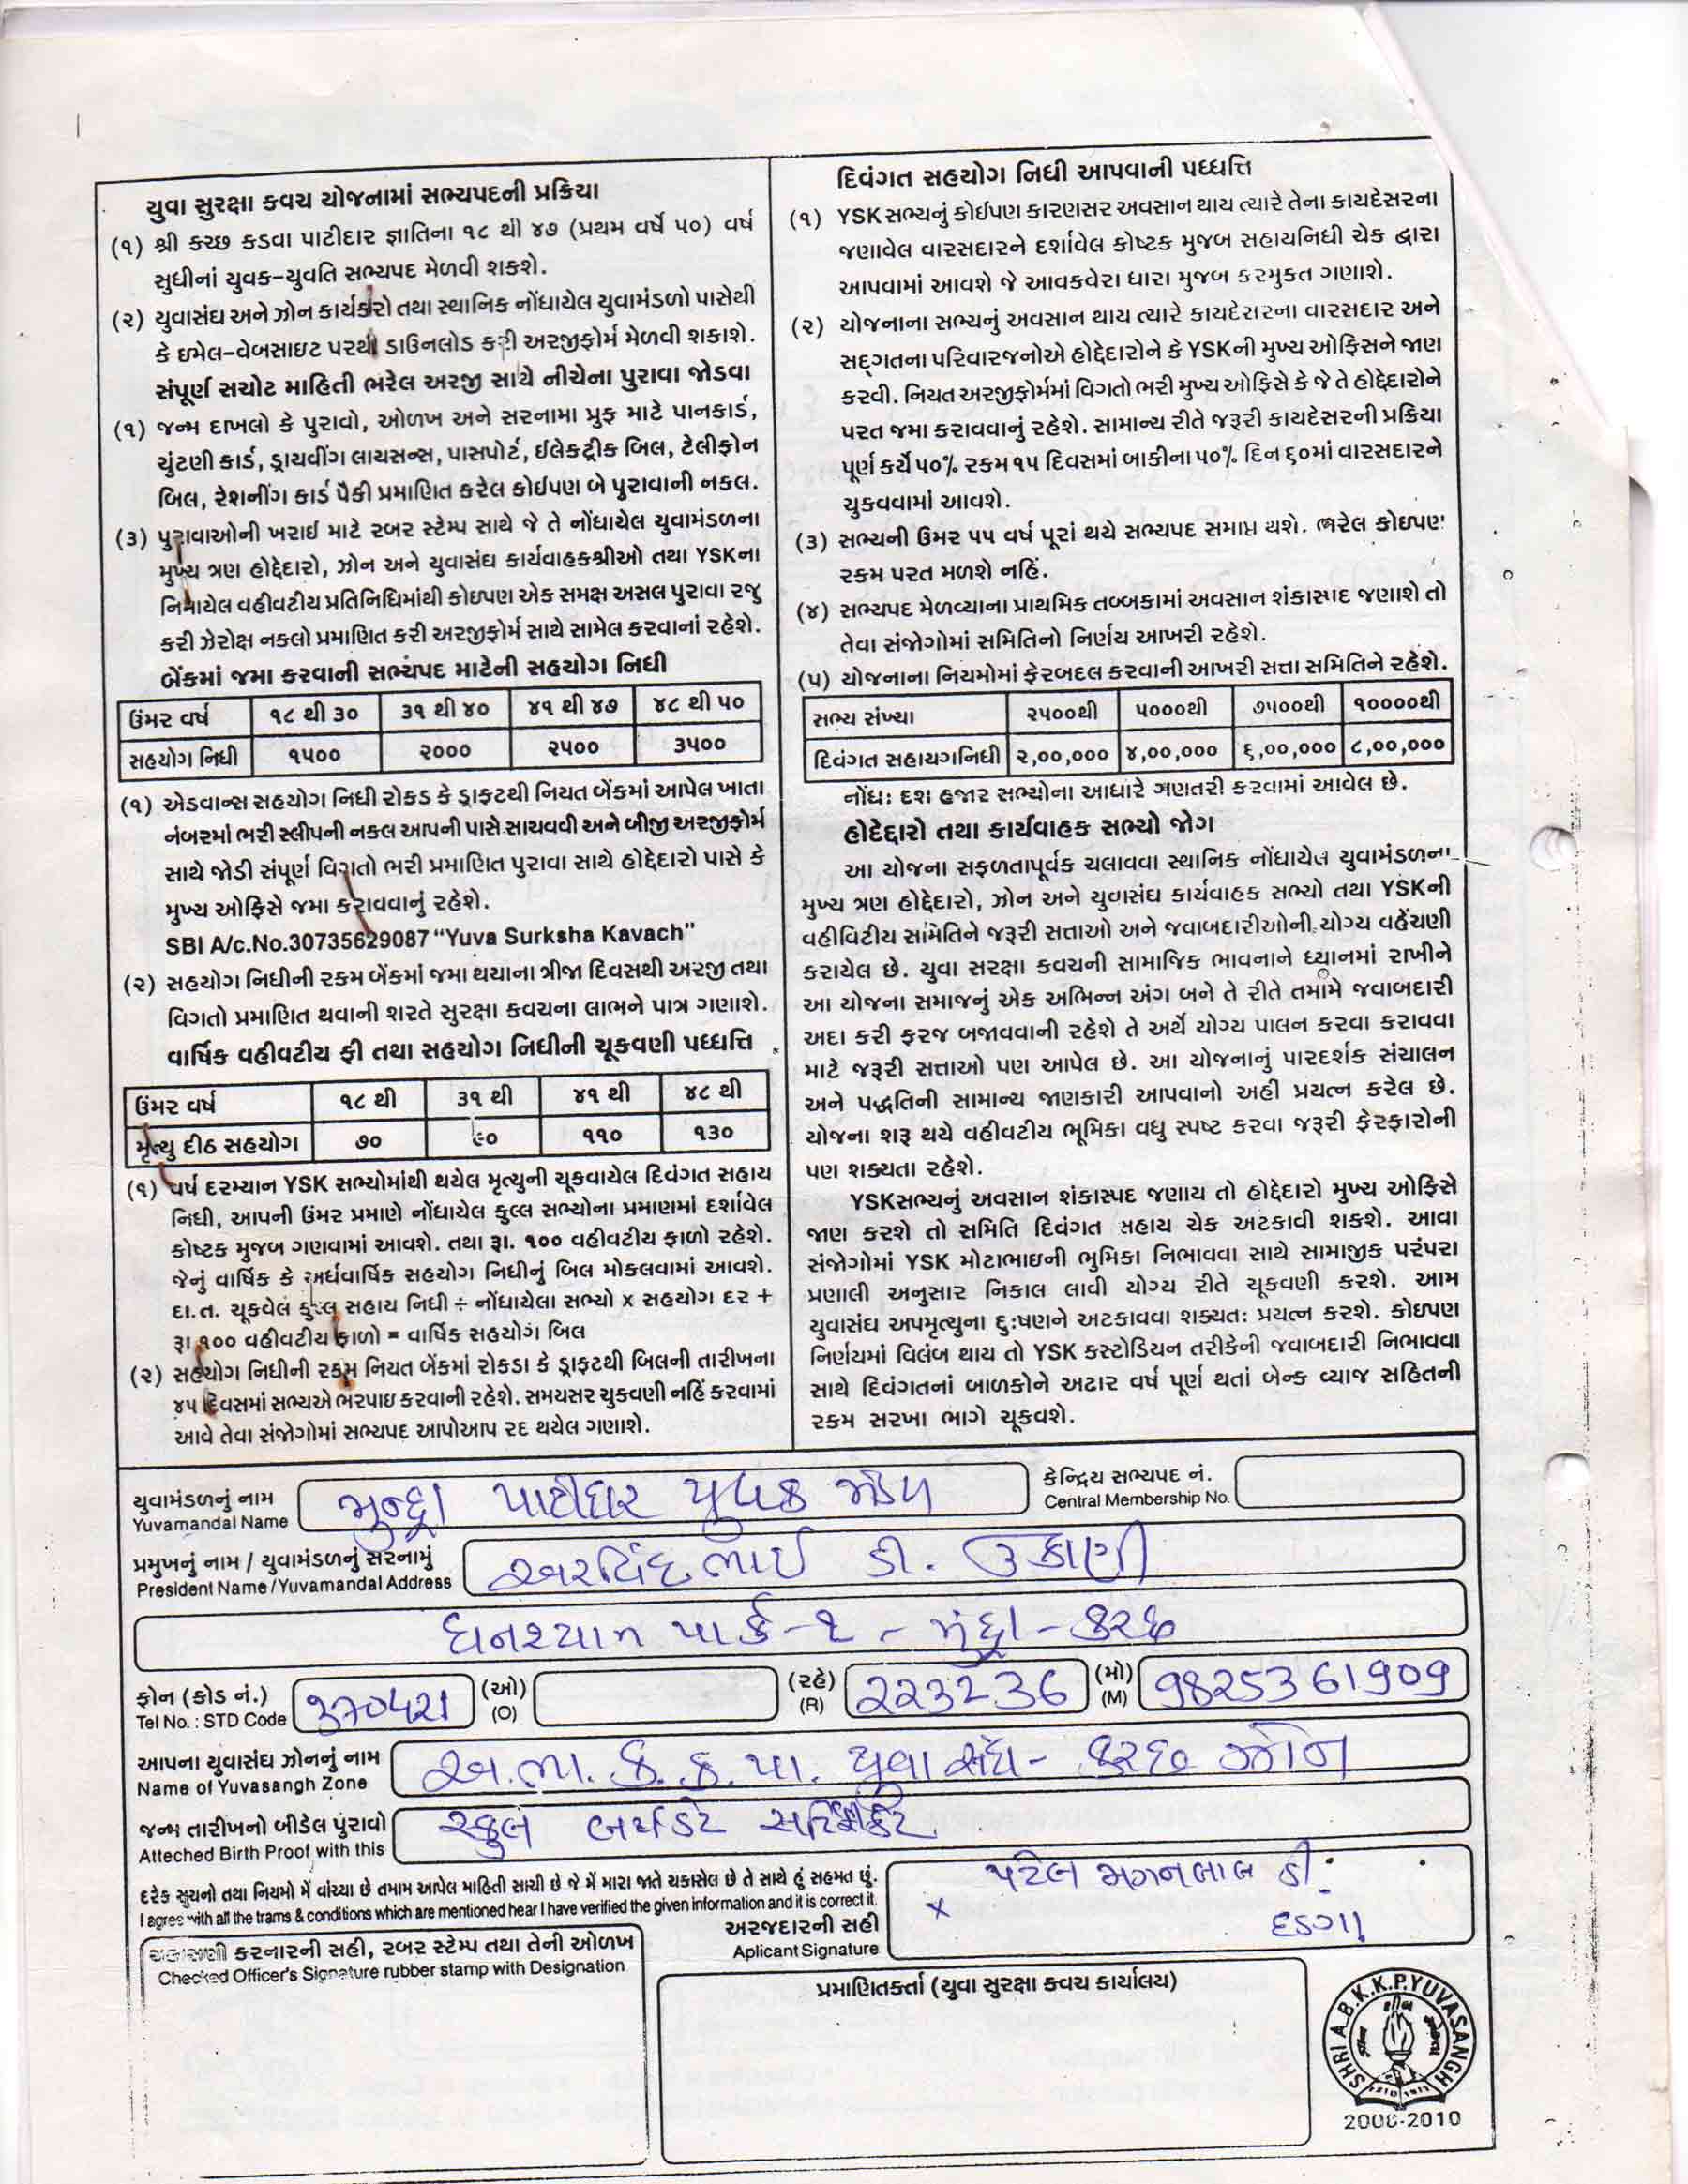 યુવા સુરક્ષા કવચ યોજનામાં સભ્યપદની પ્રક્રિયા
(૧) શ્રી કચ્છ કડવા પાટીદાર જ્ઞાતિના ૧૮ થી ૪૭ (પ્રથમ વર્ષે ૫૦) વર્ષ
સુધીનાં યુવક-યુવતિ સભ્યપદ મેળવી શકશે.
(૨) યુવાસંઘ અને ઝોન કાર્યકરો તથા સ્થાનિક નોંધાયેલ યુવામંડળો પાસેથી
કે ઇમેલ-વેબસાઇટ પરથી ડાઉનલોડ કરી અરજીફોર્મ મેળવી શકાશે.
સંપૂર્ણ સચોટ માહિતી ભરેલ અરજી સાથે નીચેના પુરાવા જોડવા
(૧) જન્મ દાખલો કે પુરાવો, ઓળખ અને સરનામા પ્રુફ માટે પાનકાર્ડ,
ચુંટણી કાર્ડ, ડ્રાયવીંગ લાયસન્સ, પાસપોર્ટ, ઈલેક્ટ્રીક બિલ, ટેલીફોન
બિલ, રેશનીંગ કાર્ડ પૈકી પ્રમાણિત કરેલ કોઈપણ બે પુરાવાની નકલ.
(૩) પુરાવાઓની ખરાઈ માટે રબર સ્ટેમ્પ સાથે જે તે નોંધાયેલ યુવામંડળના
મુખ્ય ત્રણ હોદ્દેદારો, ઝોન અને યુવાસંઘ કાર્યવાહકશ્રીઓ તથા YSKના
નિમાયેલ વહીવટીય પ્રતિનિધિમાંથી કોઇપણ એક સમક્ષ અસલ પુરાવા રજુ
કરી ઝેરોક્ષ નકલો પ્રમાણિત કરી અરજીફોર્મ સાથે સામેલ કરવાનાં રહેશે.
બેંકમાં જમા કરવાની સભ્યપદ માટેની સહયોગ નિધી
ઉંમર વર્ષ ૧૮ થી ૩૦ ૩૧ થી ૪૦ ૪૧ થી ૪૭ ૪૮ થી ૫૦
સહયોગ નિધી ૧૫૦૦ ૨૦૦૦ ૨૫૦૦ ૩૫૦૦
(૧) એડવાન્સ સહયોગ નિધી રોકડ કે ડ્રાફ્ટથી નિયત બેંકમાં આપેલ ખાતા
નંબરમાં ભરી સ્લીપની નકલ આપની પાસે સાચવવી અને બીજી અરજીફોર્મ
સાથે જોડી સંપૂર્ણ વિગતો ભરી પ્રમાણિત પુરાવા સાથે હોદ્દેદારો પાસે કે
મુખ્ય ઓફિસે જમા કરાવવાનું રહેશે.
SBI A/c.No.30735629087 “Yuva Surksha Kavach”
(૨) સહયોગ નિધીની રકમ બેંકમાં જમા થયાના ત્રીજા દિવસથી અરજી તથા
વિગતો પ્રમાણિત થવાની શરતે સુરક્ષા કવચના લાભને પાત્ર ગણાશે.
વાર્ષિક વહીવટીય ફી તથા સહયોગ નિધીની ચૂકવણી પધ્ધત્તિ
ઉંમર વર્ષ ૧૮ થી ૩૧ થી ૪૧ થી ૪૮ થી
મૃત્યુ દીઠ સહયોગ ૭૦ ૯૦ ૧૧૦ ૧૩૦
(૧) વર્ષ દરમ્યાન YSK સભ્યોમાંથી થયેલ મૃત્યુની ચૂકવાયેલ દિવંગત સહાય
નિધી, આપની ઉંમર પ્રમાણે નોંધાયેલ કુલ્લ સભ્યોના પ્રમાણમાં દર્શાવેલ
કોષ્ટક મુજબ ગણવામાં આવશે. તથા રૂા. ૧૦૦ વહીવટીય ફાળો રહેશે.
જેનું વાર્ષિક કે અર્ધવાર્ષિક સહયોગ નિધીનું બિલ મોકલવામાં આવશે.
દા.ત. ચૂકવેલ કુલ્લ સહાય નિધી ÷ નોંધાયેલા સભ્યો x સહયોગ દર +
રૂા ૧૦૦ વહીવટીય ફાળો = વાર્ષિક સહયોગ બિલ
(૨) સહયોગ નિધીની રકમ નિયત બેંકમાં રોકડા કે ડ્રાફ્ટથી બિલની તારીખના
૪૫ દિવસમાં સભ્યએ ભરપાઇ કરવાની રહેશે. સમયસર ચુકવણી નહિં કરવામાં
આવે તેવા સંજોગોમાં સભ્યપદ આપોઆપ રદ થયેલ ગણાશે.
દિવંગત સહયોગ નિધી આપવાની પધ્ધત્તિ
(૧) YSK સભ્યનું કોઈપણ કારણસર અવસાન થાય ત્યારે તેના કાયદેસરના
જણાવેલ વારસદારને દર્શાવેલ કોષ્ટક મુજબ સહાયનિધી ચેક દ્વારા
આપવામાં આવશે જે આવકવેરા ધારા મુજબ કરમુકત ગણાશે.
(૨) યોજનાના સભ્યનું અવસાન થાય ત્યારે કાયદેસરના વારસદાર અને
સદ્ગતના પરિવારજનોએ હોદ્દેદારોને કે YSKની મુખ્ય ઓફિસને જાણ
કરવી. નિયત અરજીફોર્મમાં વિગતો ભરી મુખ્ય ઓફિસે કે જે તે હોદ્દેદારોને
પરત જમા કરાવવાનું રહેશે. સામાન્ય રીતે જરૂરી કાયદેસરની પ્રક્રિયા
પૂર્ણ કર્યે ૫૦% રકમ ૧૫ દિવસમાં બાકીના ૫૦% દિન ૬૦માં વારસદારને
ચુકવવામાં આવશે.
(૩) સભ્યની ઉમર ૫૫ વર્ષ પૂરાં થયે સભ્યપદ સમાપ્ત થશે. ભરેલ કોઇપણ
રકમ પરત મળશે નહિં.
(૪) સભ્યપદ મેળવ્યાના પ્રાથમિક તબ્બકામાં અવસાન શંકાસ્પદ જણાશે તો
તેવા સંજોગોમાં સમિતિનો નિર્ણય આખરી રહેશે.
(૫) યોજનાના નિયમોમાં ફેરબદલ કરવાની આખરી સત્તા સમિતિને રહેશે.
સભ્ય સંખ્યા ૨૫૦૦થી ૫૦૦૦થી ૭૫૦૦થી ૧૦૦૦૦થી
દિવંગત સહાયગનિધી ૨,૦૦,૦૦૦ ૪,૦૦,૦૦૦ ૬,૦૦,૦૦૦ ૮,૦૦,૦૦૦
નોંધઃ દશ હજાર સભ્યોના આધારે ગણતરી કરવામાં આવેલ છે.
હોદેદ્દારો તથા કાર્યવાહક સભ્યો જોગ
આ યોજના સફળતાપૂર્વક ચલાવવા સ્થાનિક નોંધાયેલ યુવામંડળના
મુખ્ય ત્રણ હોદ્દેદારો, ઝોન અને યુવાસંઘ કાર્યવાહક સભ્યો તથા YSKની
વહીવિટીય સમિતિને જરૂરી સત્તાઓ અને જવાબદારીઓની યોગ્ય વહેંચણી
કરાયેલ છે. યુવા સરક્ષા કવચની સામાજિક ભાવનાને ધ્યાનમાં રાખીને
આ યોજના સમાજનું એક અભિન્ન અંગ બને તે રીતે તમામે જવાબદારી
અદા કરી ફરજ બજાવવાની રહેશે તે અર્થે યોગ્ય પાલન કરવા કરાવવા
માટે જરૂરી સત્તાઓ પણ આપેલ છે. આ યોજનાનું પારદર્શક સંચાલન
અને પદ્ધતિની સામાન્ય જાણકારી આપવાનો અહી પ્રયત્ન કરેલ છે.
યોજના શરૂ થયે વહીવટીય ભૂમિકા વધુ સ્પષ્ટ કરવા જરૂરી ફેરફારોની
પણ શક્યતા રહેશે.
YSKસભ્યનું અવસાન શંકાસ્પદ જણાય તો હોદ્દેદારો મુખ્ય ઓફિસે
જાણ કરશે તો સમિતિ દિવંગત સહાય ચેક અટકાવી શકશે. આવા
સંજોગોમાં YSK મોટાભાઇની ભુમિકા નિભાવવા સાથે સામાજીક પરંપરા
પ્રણાલી અનુસાર નિકાલ લાવી યોગ્ય રીતે ચૂકવણી કરશે. આમ
યુવાસંઘ અપમૃત્યુના દુઃષણને અટકાવવા શક્યતઃ પ્રયત્ન કરશે. કોઇપણ
નિર્ણયમાં વિલંબ થાય તો YSK કસ્ટોડિયન તરીકેની જવાબદારી નિભાવવા
સાથે દિવંગતનાં બાળકોને અઢાર વર્ષ પૂર્ણ થતાં બેન્ક વ્યાજ સહિતની
રકમ સરખા ભાગે ચૂકવશે.
યુવામંડળનું નામ મુન્દ્રા પાટીદાર યુવક મંડળ કેન્દ્રિય સભ્યપદ નં.
Yuvamandal Name Central Membership No.
પ્રમુખનું નામ / યુવામંડળનું સરનામું અરવિંદભાઈ ડી. ઉકાણી
President Name/Yuvamandal Address
ઘનશ્યામ પાર્ક-૧ - મુંદ્રા - કચ્છ
ફોન (કોડ નં.) ૩૭૦૪21 (ઓ) (રહે) ૨૨૩૨૩6 (મો) 9825361909
Tel No. : STD Code (O) (R) (M)
આપના યુવાસંઘ ઝોનનું નામ અ.ભા. ક. ક. પા. યુવાસંઘ - કચ્છ ઝોન
Name of Yuvasangh Zone
જન્મ તારીખનો બીડેલ પુરાવો સ્કુલ બર્થડેટ સર્ટિફીકેટ
Atteched Birth Proof with this
દરેક સુચનો તથા નિયમો મેં વાંચ્યા છે તમામ આપેલ માહિતી સાચી છે જે મેં મારા જાતે ચકાસેલ છે તે સાથે હું સહમત છું. પટેલ મગનલાલ ડી.
I agree with all the trams & conditions which are mentioned hear I have verified the given information and it is correct it. x
અરજદારની સહી દડગા
Aplicant Signature
ચકાસણી કરનારની સહી, રબર સ્ટેમ્પ તથા તેની ઓળખ
Checked Officer's Signature rubber stamp with Designation
પ્રમાણિતકર્તા (યુવા સુરક્ષા કવચ કાર્યાલય)
SHRI A.B.K.K.P.YUVASANGH
2008-2010